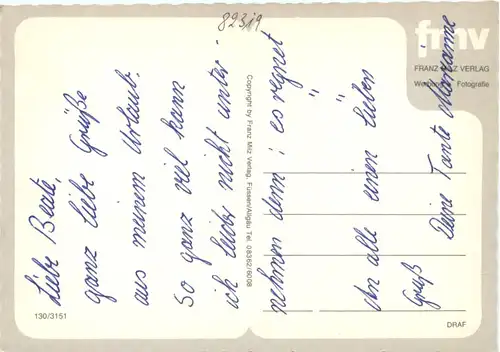 82319
fmv
FRANZ MILZ VERLAG
Fotografie
Liebe Beate,
ganz liebe Grüße
aus meinem Urlaub.
So ganz viel kann
ich leider nicht unter-
nehmen denn: es regnet
" "
An alle einen lieben
Gruß Deine Tante Marianne
Copyright by Franz Milz Verlag, Füssen/Allgäu Tel. 08362/6208
130/3151
DRAF